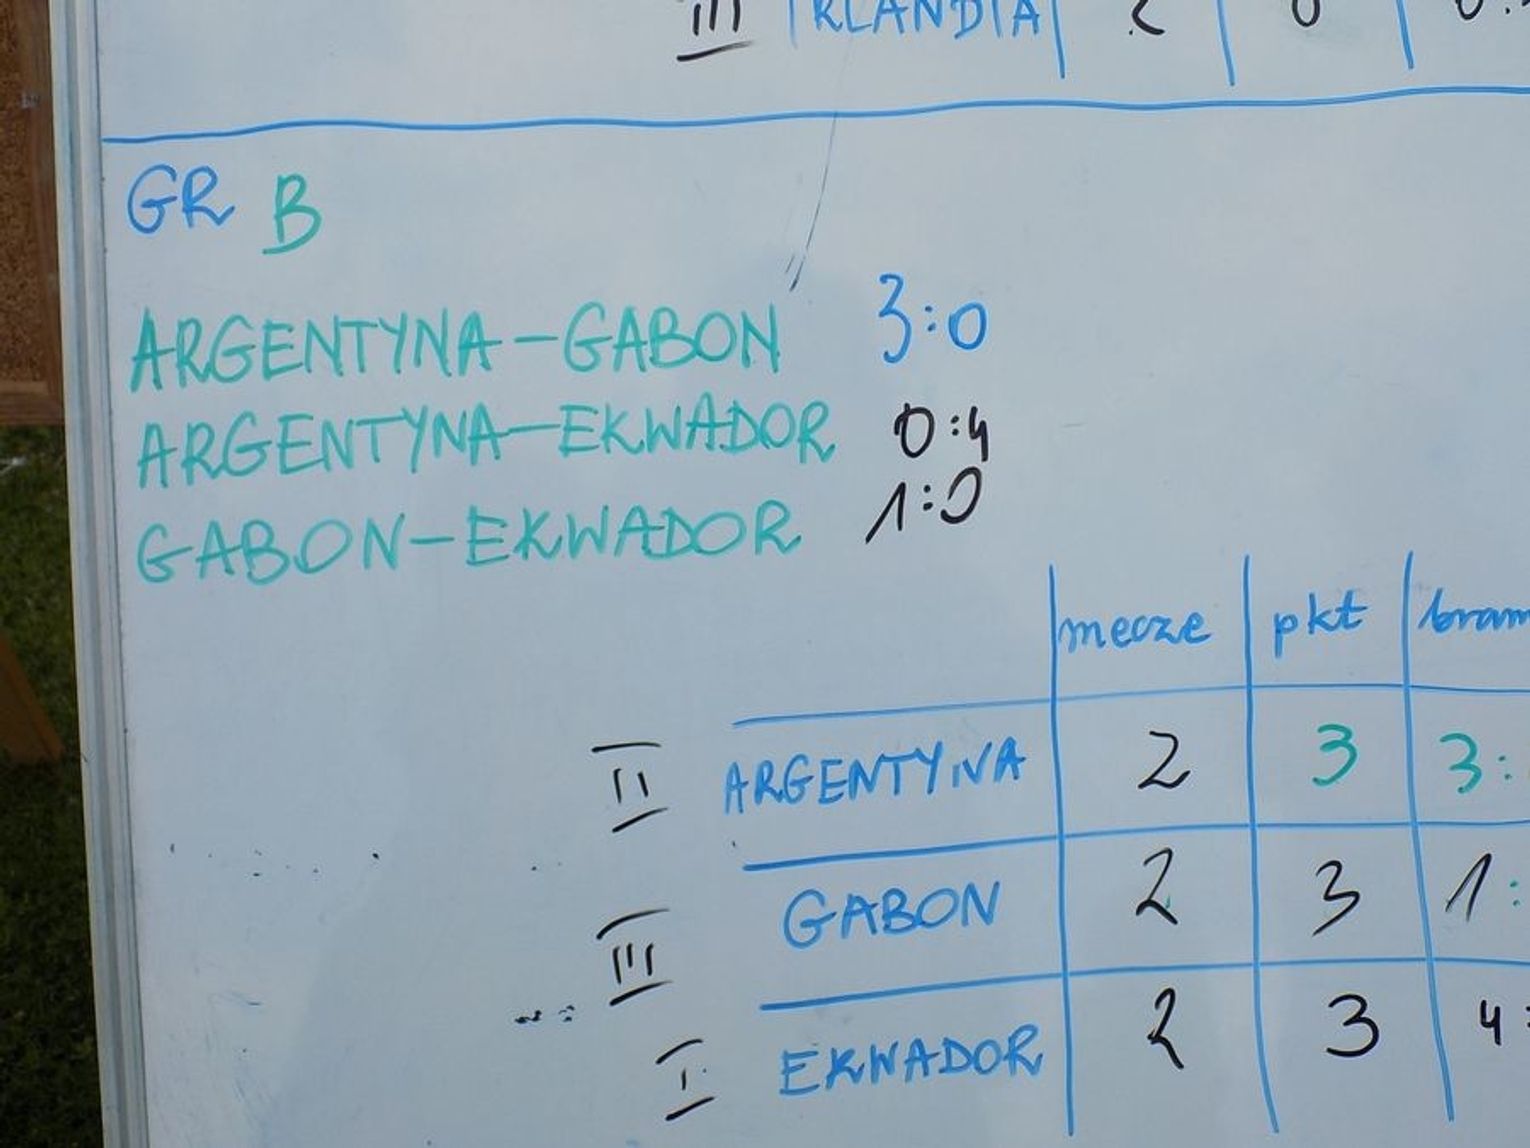 III IRLANDIA 2 0 0:
GR B
ARGENTYNA-GABON 3:0
ARGENTYNA-EKWADOR 0:4
GABON-EKWADOR 1:0
mecze pkt bram
II ARGENTYNA 2 3 3:
III GABON 2 3 1:
I EKWADOR 2 3 4: